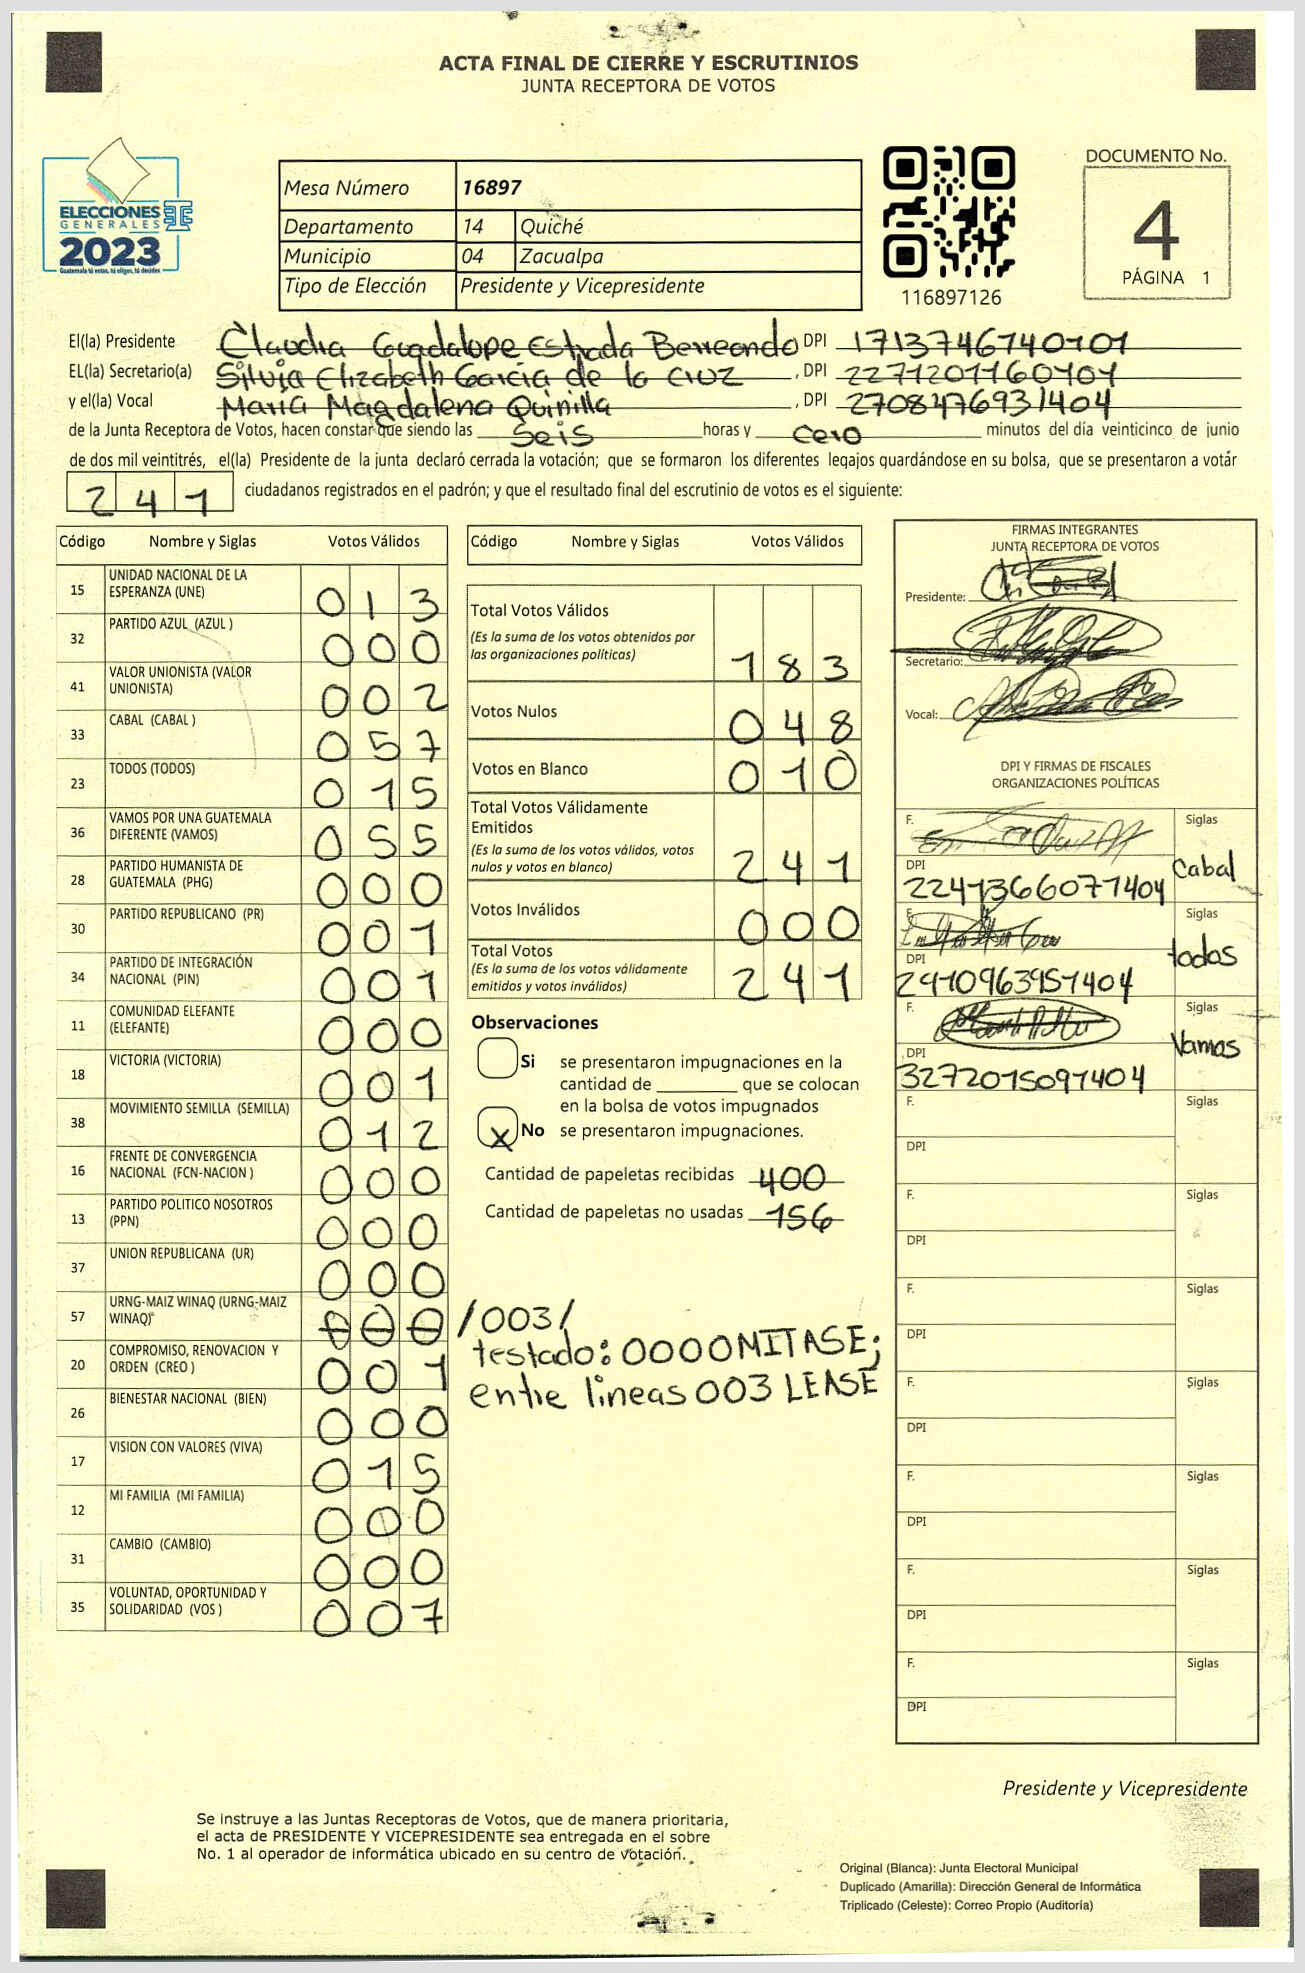 ACTA FINAL DE CIERRE Y ESCRUTINIOS
JUNTA RECEPTORA DE VOTOS
ELECCIONES
GENERALES
2023
Guatemala tú votas, tú eliges, tú decides
Mesa Número 16897
Departamento 14 Quiché
Municipio 04 Zacualpa
Tipo de Elección Presidente y Vicepresidente
116897126
DOCUMENTO No.
4
PÁGINA 1
El(la) Presidente Claudia Guadalope Estrada Berreondo DPI 1713746740101
EL(la) Secretario(a) Silvia Elizabeth García de la Cruz, DPI 2271201160101
y el(la) Vocal María Magdalena Quinilla, DPI 2708476931404
de la Junta Receptora de Votos, hacen constar que siendo las Seis horas y Cero minutos del día veinticinco de junio
de dos mil veintitrés, el(la) Presidente de la junta declaró cerrada la votación; que se formaron los diferentes legajos guardándose en su bolsa, que se presentaron a votár
241 ciudadanos registrados en el padrón; y que el resultado final del escrutinio de votos es el siguiente:
Código Nombre y Siglas Votos Válidos
15 UNIDAD NACIONAL DE LA ESPERANZA (UNE) 013
32 PARTIDO AZUL (AZUL ) 000
41 VALOR UNIONISTA (VALOR UNIONISTA) 002
33 CABAL (CABAL ) 057
23 TODOS (TODOS) 015
36 VAMOS POR UNA GUATEMALA DIFERENTE (VAMOS) 055
28 PARTIDO HUMANISTA DE GUATEMALA (PHG) 000
30 PARTIDO REPUBLICANO (PR) 001
34 PARTIDO DE INTEGRACIÓN NACIONAL (PIN) 001
11 COMUNIDAD ELEFANTE (ELEFANTE) 000
18 VICTORIA (VICTORIA) 001
38 MOVIMIENTO SEMILLA (SEMILLA) 012
16 FRENTE DE CONVERGENCIA NACIONAL (FCN-NACION ) 000
13 PARTIDO POLITICO NOSOTROS (PPN) 000
37 UNION REPUBLICANA (UR) 000
57 URNG-MAIZ WINAQ (URNG-MAIZ WINAQ) 000 /003/
20 COMPROMISO, RENOVACION Y ORDEN (CREO ) 001
26 BIENESTAR NACIONAL (BIEN) 000
17 VISION CON VALORES (VIVA) 015
12 MI FAMILIA (MI FAMILIA) 000
31 CAMBIO (CAMBIO) 000
35 VOLUNTAD, OPORTUNIDAD Y SOLIDARIDAD (VOS ) 007
Código Nombre y Siglas Votos Válidos
Total Votos Válidos
(Es la suma de los votos obtenidos por
las organizaciones políticas) 183
Votos Nulos 048
Votos en Blanco 010
Total Votos Válidamente
Emitidos
(Es la suma de los votos válidos, votos
nulos y votos en blanco) 241
Votos Inválidos 000
Total Votos
(Es la suma de los votos válidamente
emitidos y votos inválidos) 241
Observaciones
Si se presentaron impugnaciones en la
cantidad de ________ que se colocan
en la bolsa de votos impugnados
X No se presentaron impugnaciones.
Cantidad de papeletas recibidas 400
Cantidad de papeletas no usadas 156
testado: 0000MITASE;
entre lineas 003 LEASE
FIRMAS INTEGRANTES
JUNTA RECEPTORA DE VOTOS
Presidente:
Secretario:
Vocal:
DPI Y FIRMAS DE FISCALES
ORGANIZACIONES POLÍTICAS
F. Siglas
Cabal
DPI
2241366071404
F. Siglas
todos
DPI
2410963951404
F. Siglas
Vamos
DPI
3272015091404
F. Siglas
DPI
F. Siglas
DPI
F. Siglas
DPI
F. Siglas
DPI
F. Siglas
DPI
F. Siglas
DPI
F. Siglas
DPI
Presidente y Vicepresidente
Se instruye a las Juntas Receptoras de Votos, que de manera prioritaria,
el acta de PRESIDENTE Y VICEPRESIDENTE sea entregada en el sobre
No. 1 al operador de informática ubicado en su centro de votación.
Original (Blanca): Junta Electoral Municipal
Duplicado (Amarilla): Dirección General de Informática
Triplicado (Celeste): Correo Propio (Auditoría)